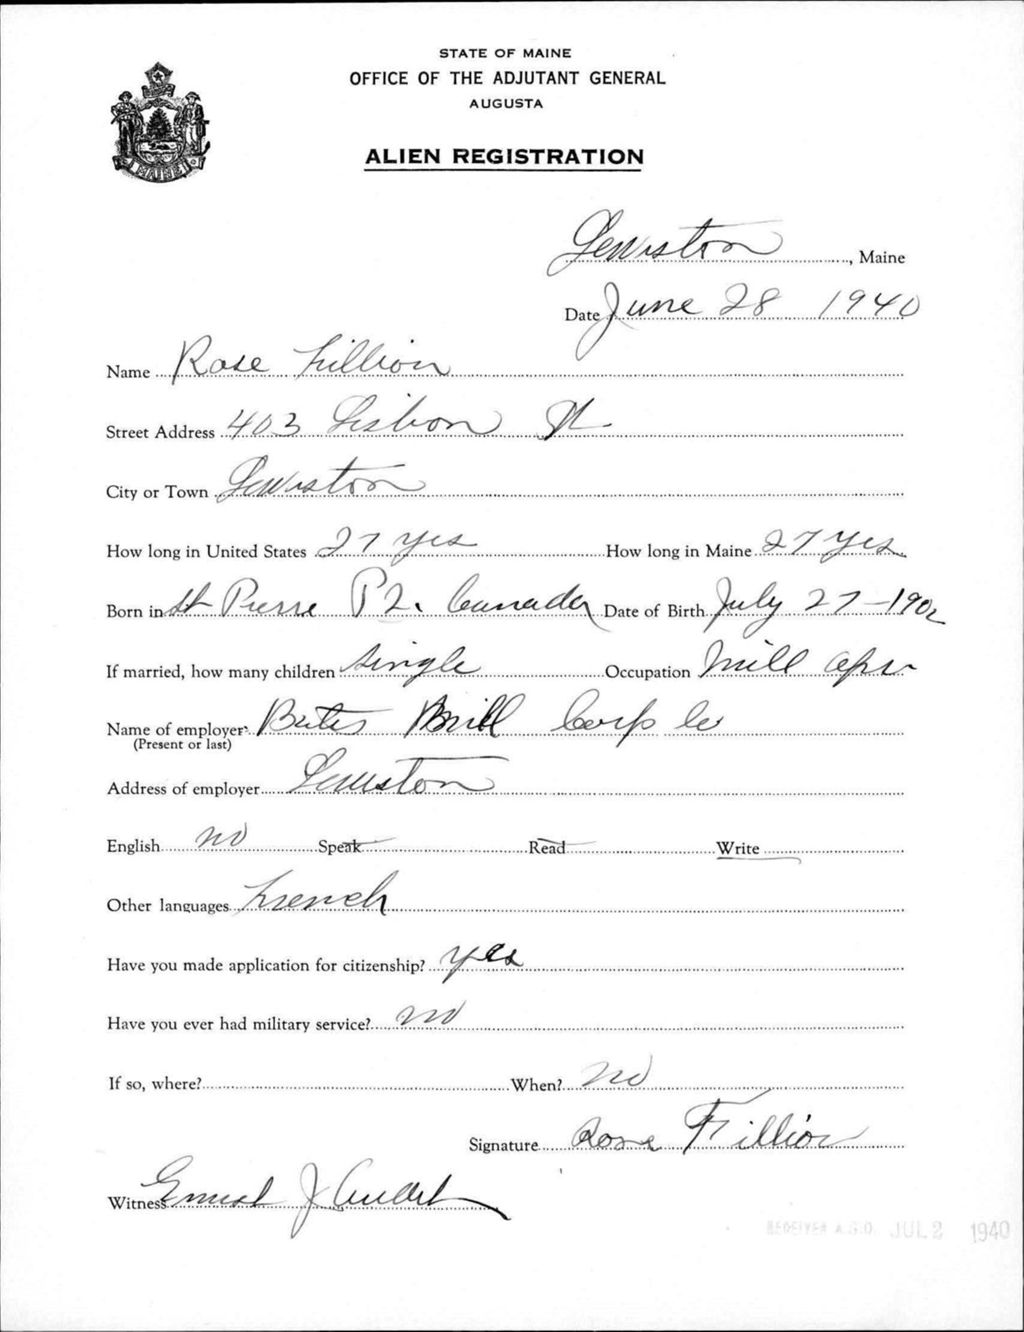 STATE OF MAINE
OFFICE OF THE ADJUTANT GENERAL
AUGUSTA
ALIEN REGISTRATION
MAINE
Lewiston, Maine
Date June 28 1940
Name Rose Fillion
Street Address 403 Lisbon St
City or Town Lewiston
How long in United States 27 yrs How long in Maine 27 yrs
Born in St Pierre P2. Canada Date of Birth July 27-1902
If married, how many children single Occupation Mill opr
Name of employer Bates Mill Corp
(Present or last)
Address of employer Lewiston
English no Speak Read Write
Other languages French
Have you made application for citizenship? yes
Have you ever had military service? no
If so, where? When? no
Signature Rose Fillion
Witness Ernest J Audet
RECEIVED A.G.O. JUL 2 1940